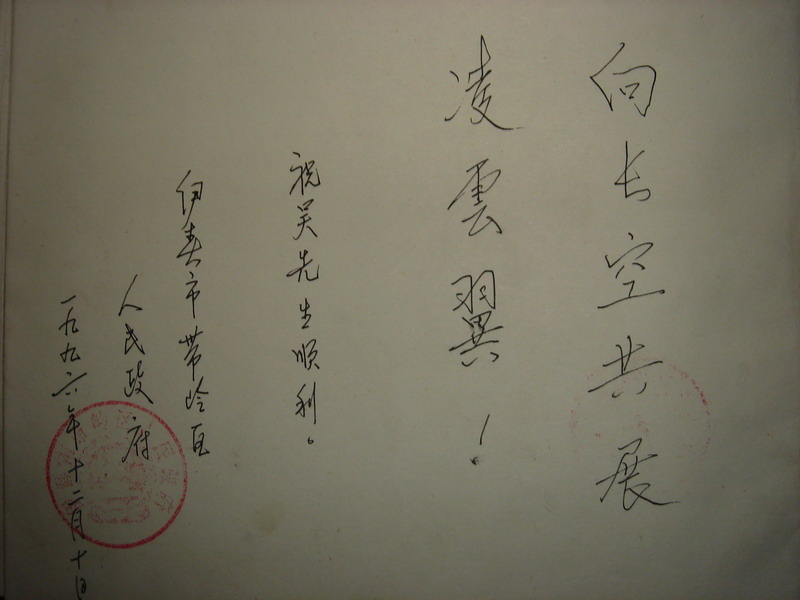 向长空共展
凌雲翼！
祝吴先生顺利。
伊春市带岭区
人民政府
一九九六年十二月十日